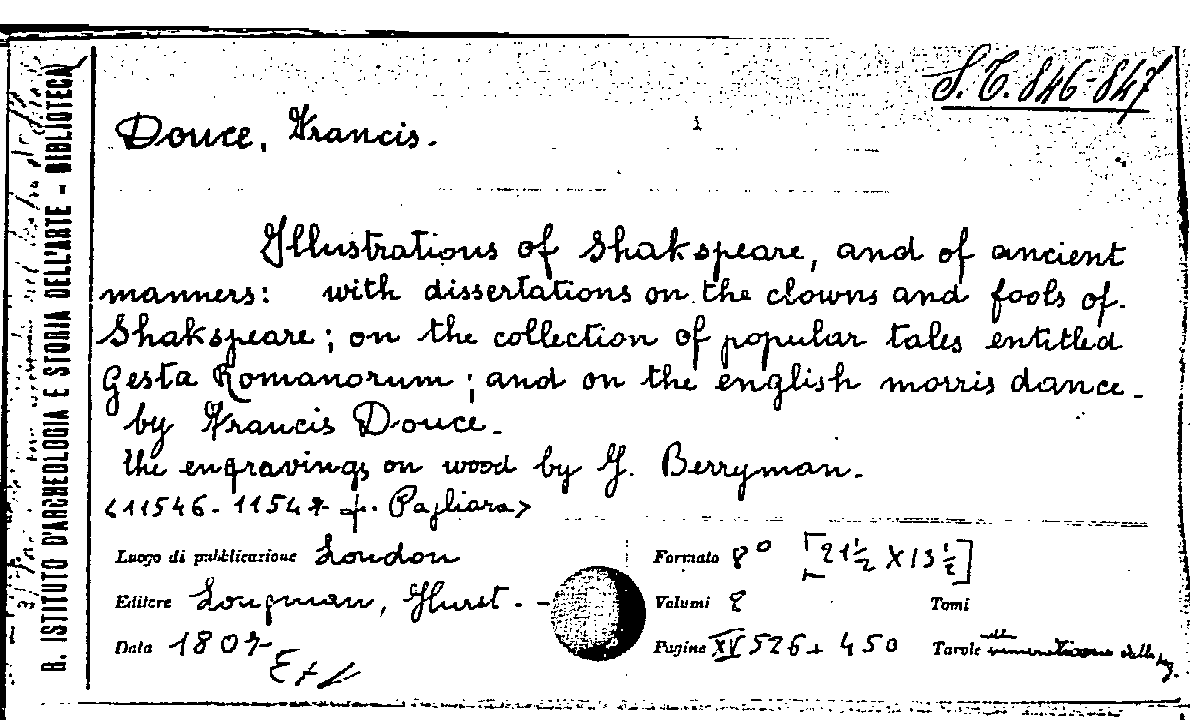 S.T. 846-847
Douce, Francis.
Illustrations of Shakspeare, and of ancient
manners: with dissertations on the clowns and fools of
Shakspeare; on the collection of popular tales entitled
Gesta Romanorum; and on the english morris dance.
by Francis Douce.
the engravings on wood by J. Berryman.
<11546-11547 f. Pagliara>
Luogo di pubblicazione London
Formato 8° [21½ X 13½]
Editore Longman, Hurst. -
Volumi 2
Tomi
Data 1807
Pagine XV 526+ 450
Tavole
R. ISTITUTO D'ARCHEOLOGIA E STORIA DELL'ARTE - BIBLIOTECA